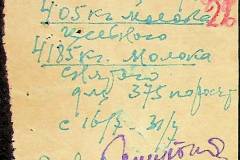 405 кг молока
цельного
4185 кг. молока
снятого
для 375 порося
с 16/7 - 31/7